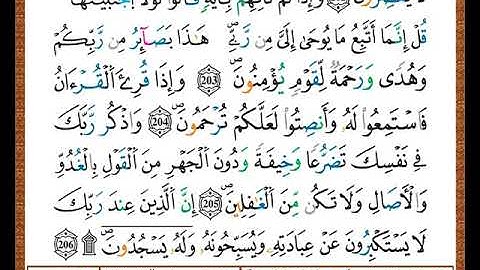 لَا يُقْصِرُونَ ۝ وَإِذَا لَمْ تَأْتِهِم بِـَٔايَةٍ قَالُوا۟ لَوْلَا ٱجْتَبَيْتَهَا
قُلْ إِنَّمَآ أَتَّبِعُ مَا يُوحَىٰٓ إِلَىَّ مِن رَّبِّى هَـٰذَا بَصَآئِرُ مِن رَّبِّكُمْ
وَهُدًى وَرَحْمَةٌ لِّقَوْمٍ يُؤْمِنُونَ 203 وَإِذَا قُرِئَ ٱلْقُرْءَانُ
فَٱسْتَمِعُوا۟ لَهُۥ وَأَنصِتُوا۟ لَعَلَّكُمْ تُرْحَمُونَ 204 وَٱذْكُر رَّبَّكَ
فِى نَفْسِكَ تَضَرُّعًا وَخِيفَةً وَدُونَ ٱلْجَهْرِ مِنَ ٱلْقَوْلِ بِٱلْغُدُوِّ
وَٱلْـَٔاصَالِ وَلَا تَكُن مِّنَ ٱلْغَـٰفِلِينَ 205 إِنَّ ٱلَّذِينَ عِندَ رَبِّكَ
لَا يَسْتَكْبِرُونَ عَنْ عِبَادَتِهِۦ وَيُسَبِّحُونَهُۥ وَلَهُۥ يَسْجُدُونَ ۩ 206